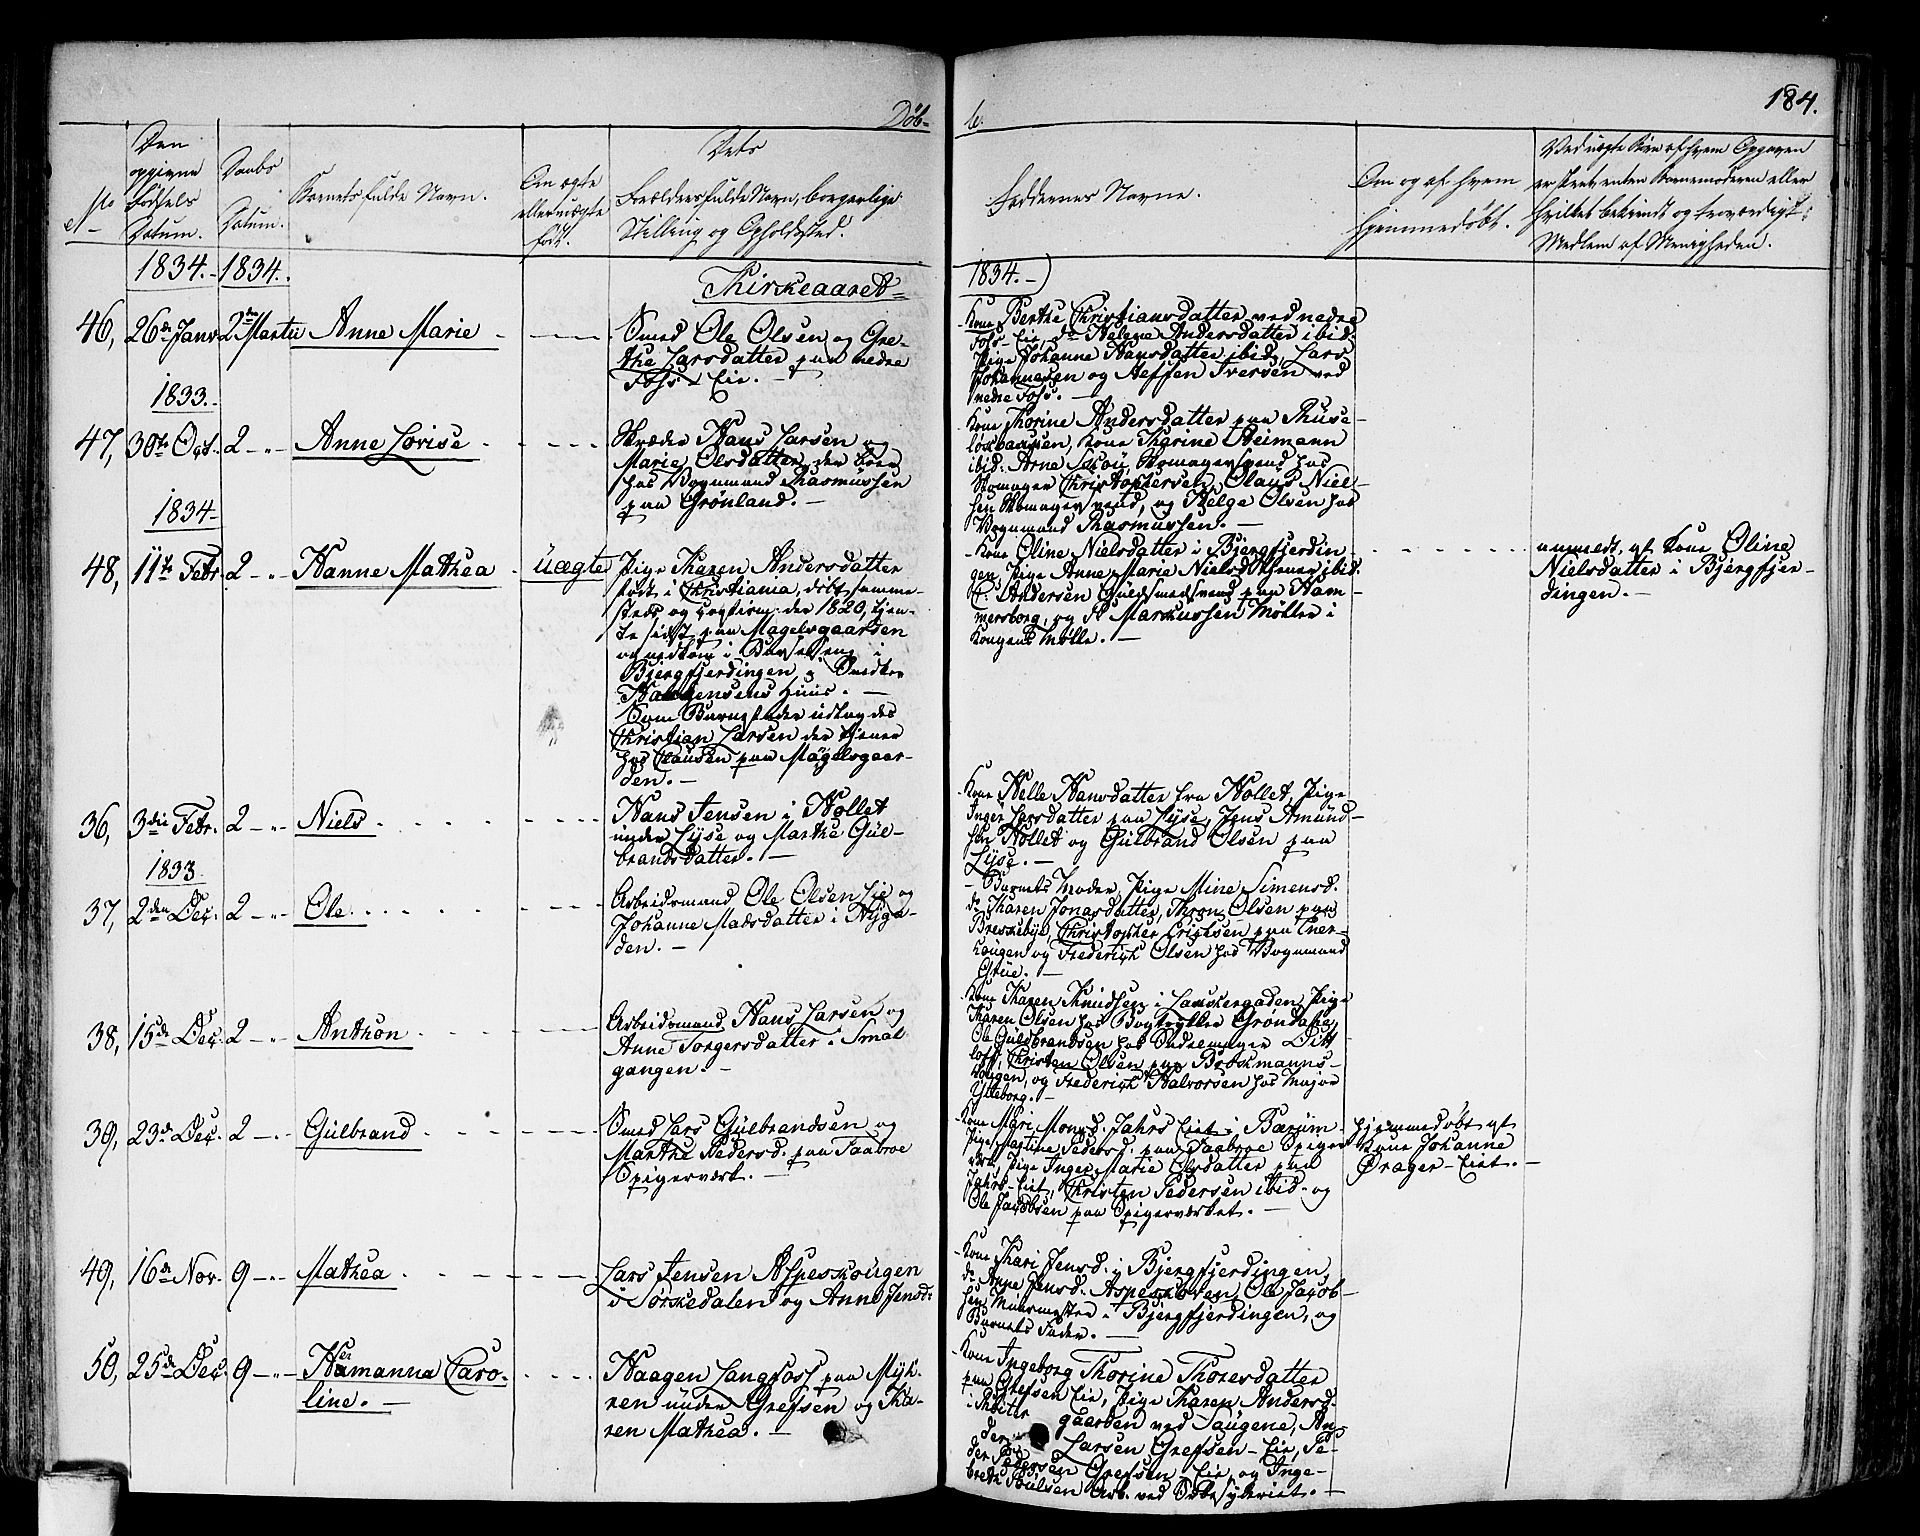 184.
Døb-
te.
No
Den
opgivne
Fødsels
Datum.
Daabs
Datum.
Barnets fulde Navn.
Om ægte
eller uægte
født.
Dets
Forældres fulde Navn, borgerlige
Stilling og Opholdssted.
Faddernes Navne.
Om og af hvem
hjemmedøbt.
Ved uægte Børn af hvem Opgaven
er skeet, enten Barnemoderen eller
hvilket bekjendt og troværdigt
Medlem af Menigheden.
1834. 1834.
Kirkeaaret
1834.-)
46, 26de Janr 2den Martii Anne Marie
Smed Ole Olsen og Gre-
the Larsdatter paa nedre
Foss-Eie.-
Kone Berthe Christiansdatter ved nedre
Foss-Eie, do Helene Andersdatter ibid.
Pige Johanne Hansdatter ibid, Lars
Johannesen og Steffen Iversen ved
nedre Foss.-
1833.
47, 30te Oct. 2 -"- Anne Lovise
Skræder Hans Larsen og
Marie Olsdatter, der boer
hos Vognmand Rasmussen
paa Grønland.-
Kone Thorine Andersdatter paa Ruse-
løkbakken, Kone Karine Reimann
ibid. Arne Skomagersvend hos
Skomager Christophersen, Olaus Niel-
sen Skomagersvend, og Helge Olsen hos
Vognmand Rasmussen.-
1834
48, 11te Febr. 2 -"- Hanne Mathea
uægte
Pige Karen Andersdatter
født i Christiania, døbt samme-
steds og confirm: der 1820, tjen-
te sidst paa Magelsgaarden
og nedkom i Barselseng i
Bjergfjerdingen i Snedker
Haagensens Huus.-
Som Barnefader udlagdes
Christian Larsen der tjener
hos Clausen paa Mågelsgaar-
den.-
Kone Oline Nielsdatter i Bjergfjerdin-
gen, Pige Anne Marie Nielsd. ibid.
C. Andersen Guldsmedsvend paa Ham-
mersborg, og P. Markussen Møller i
Kongens Mølle.-
anmeldt af Kone Oline
Nielsdatter i Bjergfjer-
dingen.-
36, 3die Febr. 2 -"- Niels
Hans Jensen i Hollet
under Lyse og Marthe Gul-
brandsdatter.-
Kone Helle Hansdatter fra Hollet, Pige
Inger Larsdatter paa Lyse, Jens Amund-
sen Hollet og Gulbrand Olsen paa
Lyse.-
1833
37, 2den Dec. 2 -"- Ole
Arbeidsmand Ole Olsen Lie og
Johanne Madsdatter i Nyga-
den.-
- Barnets Moder, Pige Mine Simensd.
do Karen Jonasdatter, Thron Olsen paa
Breskeby, Christopher Erichsen paa Ener-
haugen og Frederich Olsen hos Vognmand
Stue.-
38, 15de Dec. 2 -"- Anthon
Arbeidsmand Hans Larsen og
Anne Torgersdatter i Smal
gangen.-
Kone Karen Knudsen i Lakkergaden, Pige
Karen Olsen hos Bogtrykker Grøndahl,
Ole Guldbrandsen hos Ditt
loff, Christen Olsen paa Brokmanns-
Haugen, og Frederich Halvorsen hos Major
Ytteborg.-
39, 23de Dec. 2 -"- Gulbrand
Smed Lars Gulbrandsen og
Marthe Pedersd. paa Faabroe
Spigerværk.-
Kone Mari Monsd. Jahrs Eiet i Bærum
Pige Martine Pedersd. paa Faabroe Spiger
værk, Pige Inger Marie Olsdatter paa
Jahrs-Eiet, Christen Pedersen ibid. og
Ole Jacobsen paa Spigerværket.-
hjemmedøbt af
Kone Johanne
Drager-Eiet.-
49, 16de Nov. 9 -"- Mathea
Lars Jensen Aspeskougen
i Sørkedalen og Anne Jensd:
Kone Kari Jensd. i Bjergfjerdingen,
do Anne Jensd. Aspeskoven, Ole Jacob-
sen Muurmester i Bjergfjerdingen, og
Barnets Fader.-
50, 25de Dec. 9 -"- Hermanna Caro-
line.-
Haagen Langfoss paa Myh-
ren under Grefsen og Ka-
ren Mathea.-
Kone Ingeborg Thorine Thoresdatter
paa Grefsen Eie, Pige Karen Andersd.
gaarden ved Saugene, An-
ders Larsen Grefsen-Eie, Pe-
der Pedersen Grefsen Eie, og Inge-
breth Poulsen Arb. ved Sæbesyderiet.-